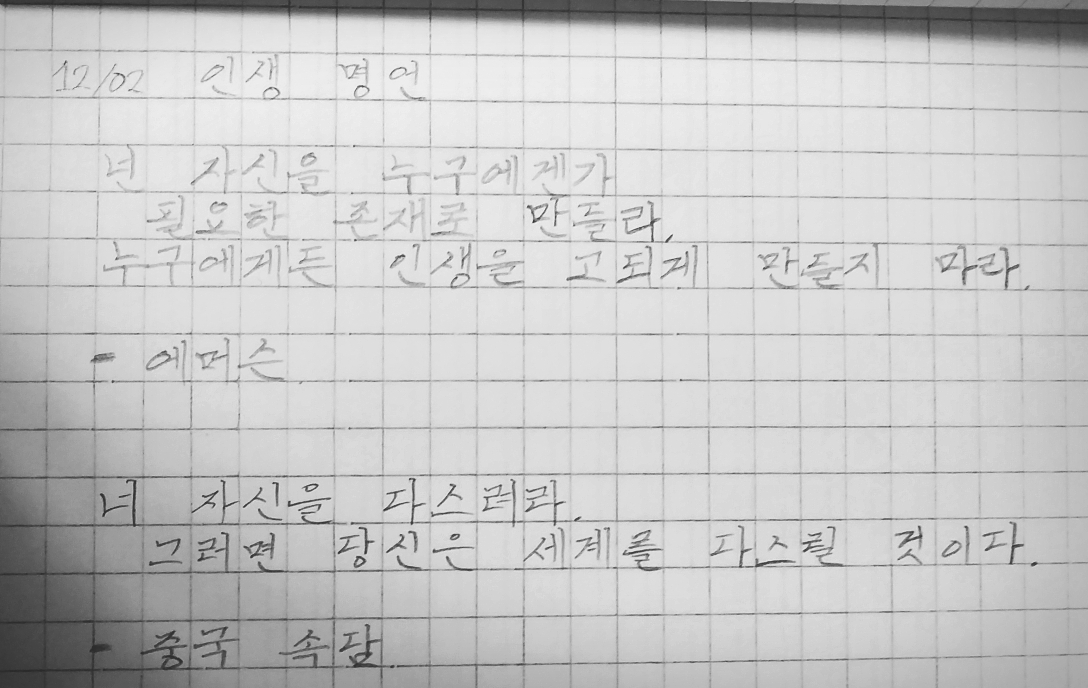 12/02 인생 명언
넌 자신을 누구에겐가
필요한 존재로 만들라.
누구에게든 인생을 고되게 만들지 마라.
- 에머슨
너 자신을 다스려라.
그러면 당신은 세계를 다스릴 것이다.
- 중국 속담